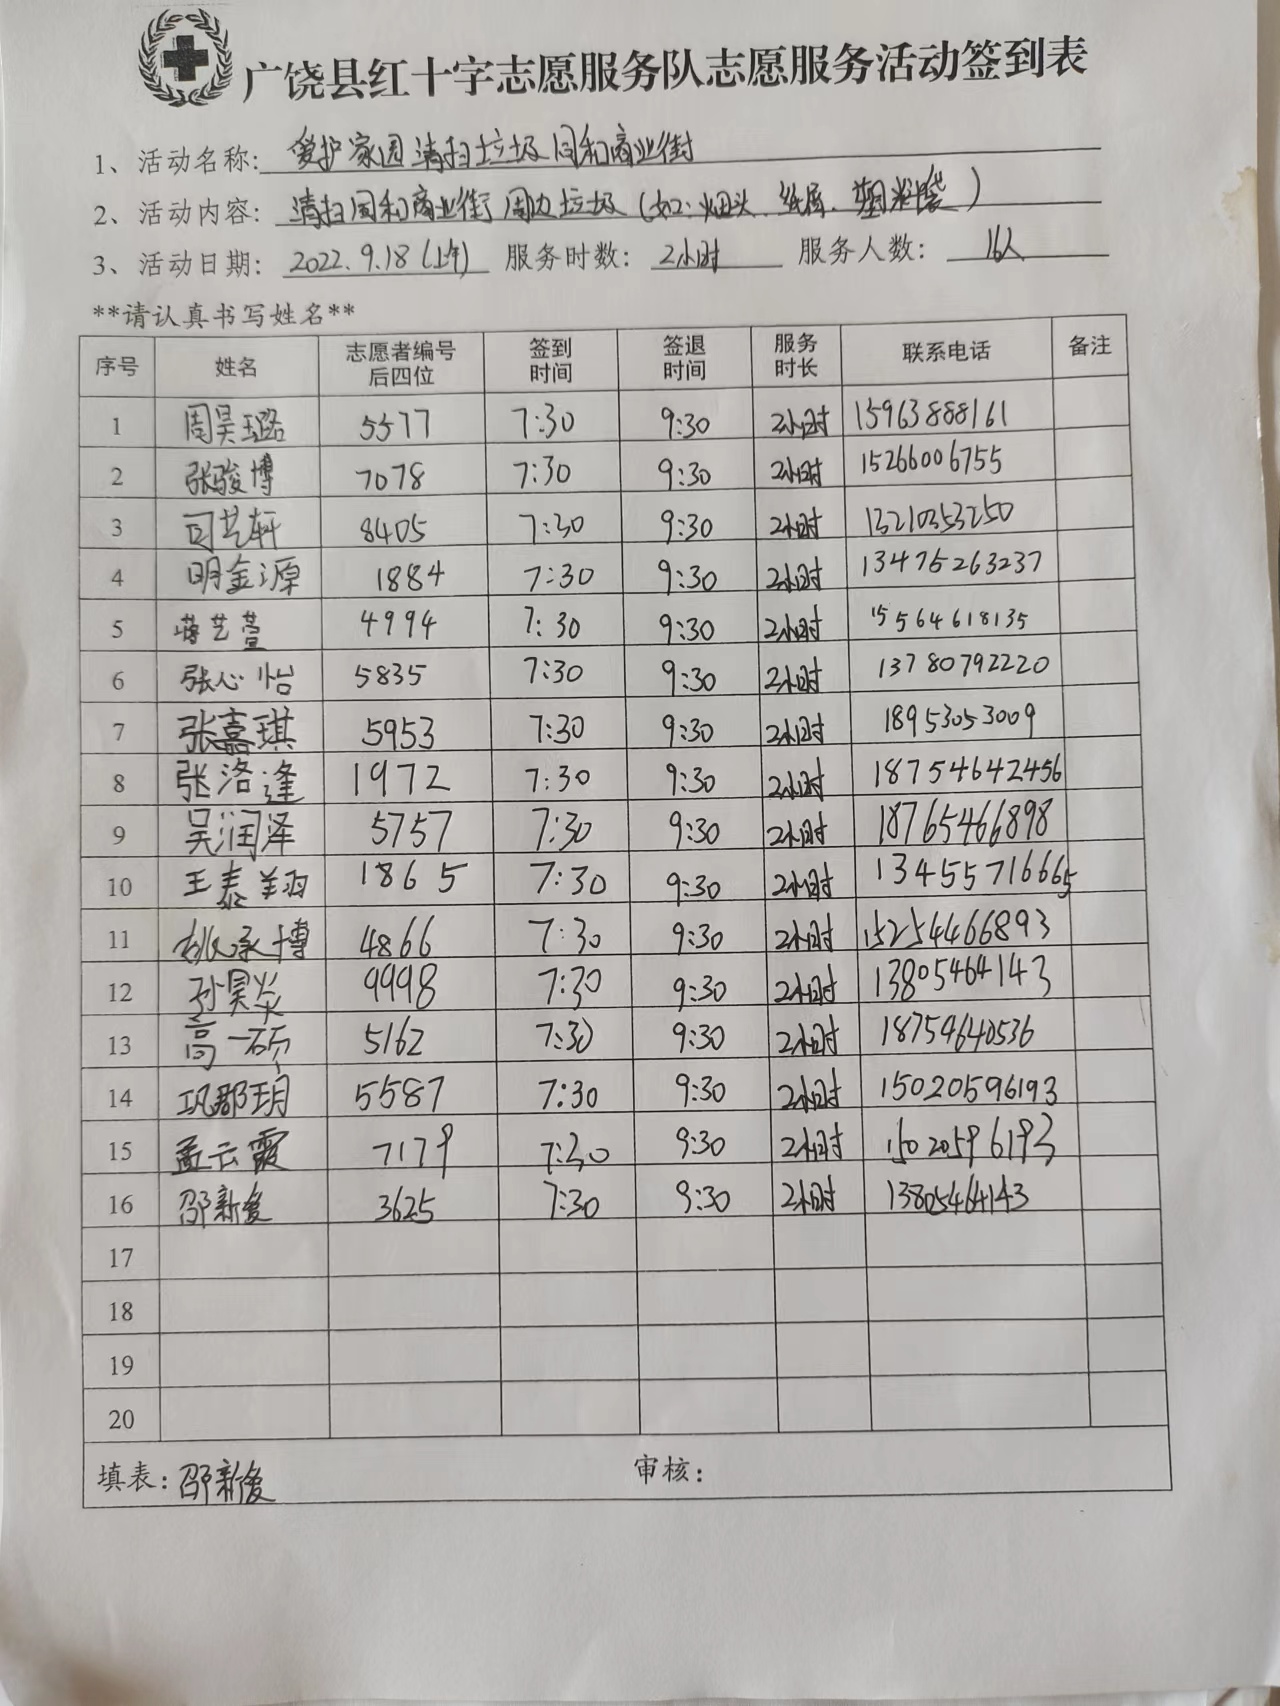 广饶县红十字志愿服务队志愿服务活动签到表
1、活动名称: 爱护家园清扫垃圾同和商业街
2、活动内容: 清扫同和商业街周边垃圾(如:烟头、纸屑、塑料袋)
3、活动日期: 2022.9.18(上午) 服务时数: 2小时 服务人数: 16人
**请认真书写姓名**
序号 姓名 志愿者编号后四位 签到时间 签退时间 服务时长 联系电话 备注
1 周昊璐 5577 7:30 9:30 2小时 15963888161
2 张骏博 7078 7:30 9:30 2小时 15266006755
3 司艺轩 8405 7:30 9:30 2小时 13210353250
4 明金源 1884 7:30 9:30 2小时 13475263237
5 蒋艺萱 4994 7:30 9:30 2小时 15564618135
6 张心怡 5835 7:30 9:30 2小时 13780792220
7 张嘉琪 5953 7:30 9:30 2小时 18953053009
8 张洛逢 1972 7:30 9:30 2小时 18754642456
9 吴润泽 5757 7:30 9:30 2小时 18765466898
10 王泰 1865 7:30 9:30 2小时 13455716665
11 承博 4866 7:30 9:30 2小时 15254466893
12 孙昊炎 9998 7:30 9:30 2小时 13805464143
13 高一硕 5162 7:30 9:30 2小时 18759640536
14 巩郡玥 5587 7:30 9:30 2小时 15020596193
15 孟云霞 7179 7:30 9:30 2小时 15020596193
16 邵新俊 3625 7:30 9:30 2小时 13805464143
17
18
19
20
填表: 邵新俊 审核: